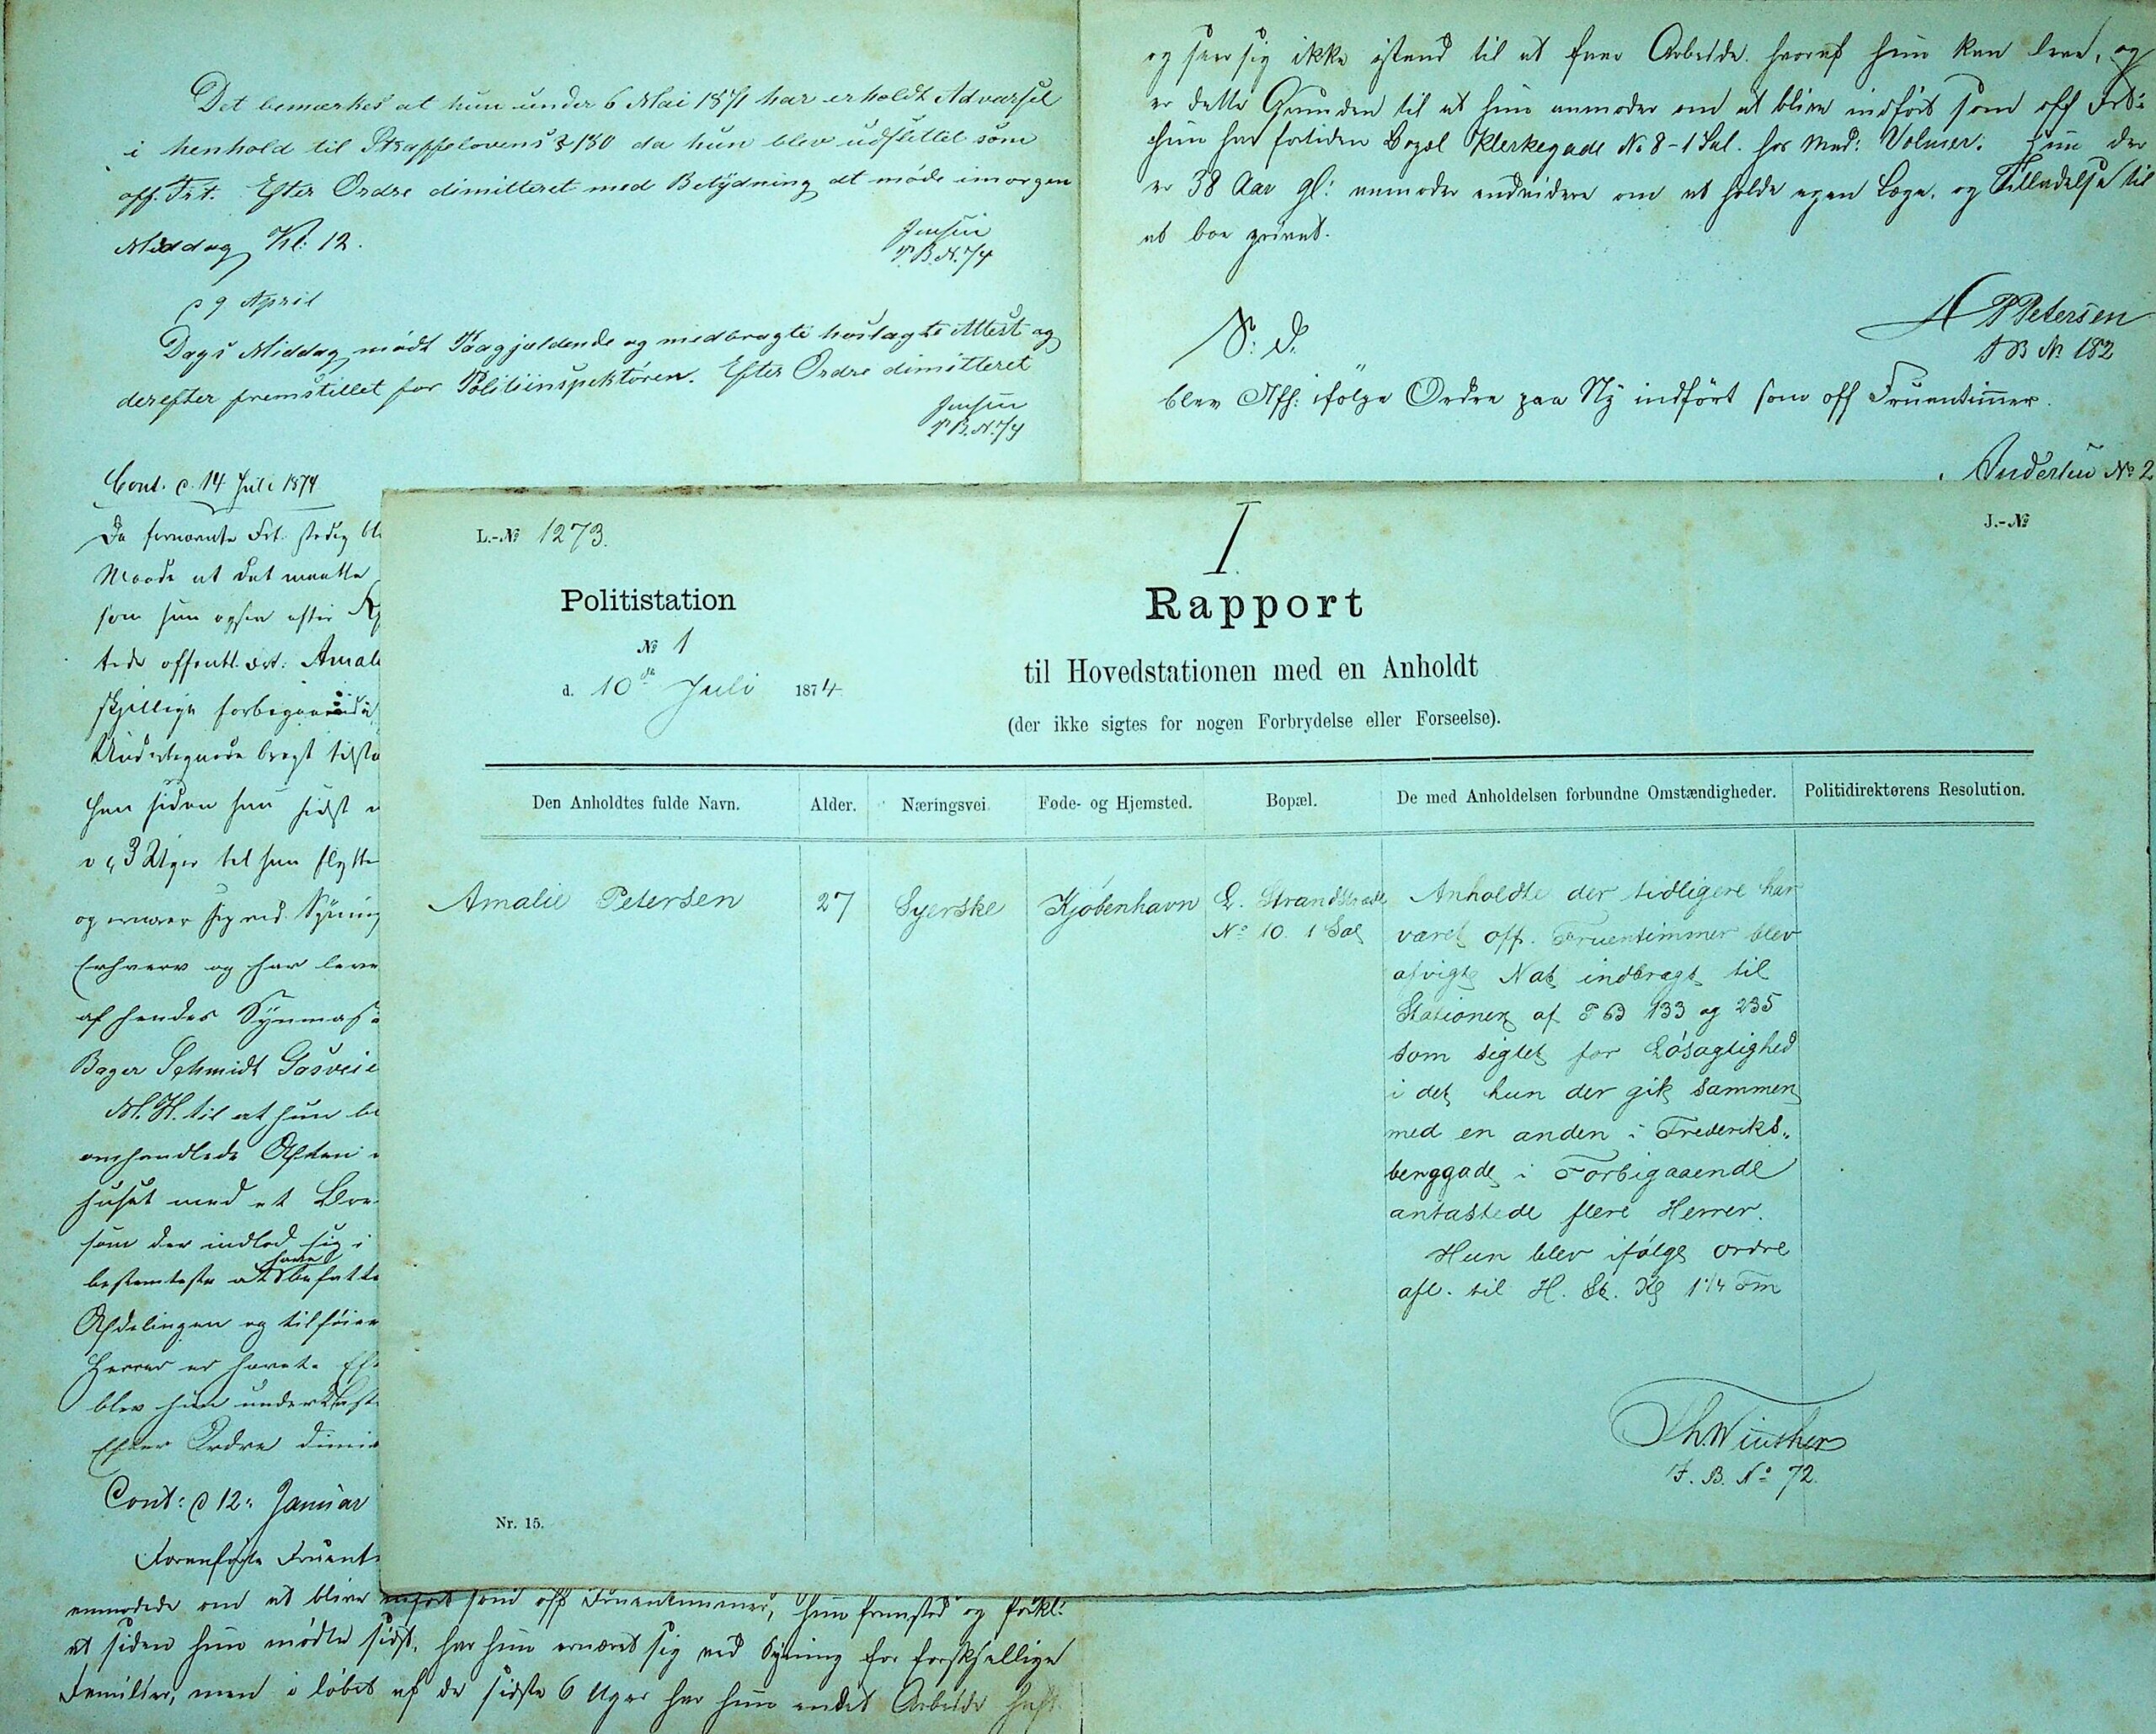 Det bemærkes at hun under 6 Mai 1871 har erholdt Advarsel
i henhold til Straffelovens § 180 da hun blev udslettet som
off. Frt. Efter Ordre dimitteret med Betydning at møde imorgen
Middag Kl: 12.
Jensen
P.B.N. 74
D 9 April
Dags Middag mødt Paagjældende og medbragte hoslagte Attest og
derefter fremstillet for Politiinspektøren. Efter Ordre dimitteret
Jensen
P.B.N. 74
Cont. d. 14 Juli 1874
Da fornævnte Frt. stadig
Maade at det maatte
som hun ogsaa efter
tede offentl. Frt: Amali
skjellige forbigaaende
Undertegnede bragt
han siden hun sidst
3 Uger til hun flytte
og ernærer sig ved Syning
Erhverv og har leve
af hendes Symas
Bager Schmidt Gasveie
M.H. til at hun
omhandlede Aften
huset med et
som der indlod sig i
have
bestemteste at befatte
Afdelingen og tilføier
Herrer er hævet. Eft
blev hun underkast
Efter Ordre dimi
Cont: d 12: Januar
Fruent
anmodede om at blive indført som off Fruentimmer, hun fremstod og forkl:
at siden hun mødte sidst, har hun ernæret sig ved Syning for forskjellige
Familier, men i løbet af de sidste 6 Uger har hun andet Arbeide haft
og seer sig ikke istand til at faae Arbeide hvoraf hun kan leve, og
er dette Grunden til at hun anmoder om at blive indført som off Frt:
hun har fortiden Bopæl Klerkegade No 8 - 1 Sal. hos Mad: Volmer. Hun der
er 38 Aar gl: anmoder endvidere om at holde egen Læge, og Tilladelse til
at boe privat.
P Petersen
P B No 182
S: D.
blev Afh: ifølge Ordre paa Ny indført som off Fruentimmer.
Andersen No 2
L.-No 1273.
I
J.-No
Politistation
No 1
d. 10de Juli 1874
Rapport
til Hovedstationen med en Anholdt
(der ikke sigtes for nogen Forbrydelse eller Forseelse).
Den Anholdtes fulde Navn. Alder. Næringsvei. Føde- og Hjemsted. Bopæl. De med Anholdelsen forbundne Omstændigheder. Politidirektørens Resolution.
Amalie Petersen 27 Syerske Kjøbenhavn L. Strandstræde
No 10. 1 Sal
Anholdte der tidligere har
været off. Fruentimmer blev
afvigte Nat indbragt til
Stationen af P B 133 og 235
som sigtet for Løsagtighed
i det hun der gik sammen
med en anden i Frederiks„
berggade i Forbigaaende
antastede flere Herrer.
Hun blev ifølge ordre
afl. til H. St. Kl 1 1/4 Fm
Th. Winther
F. B. No 72.
Nr. 15.